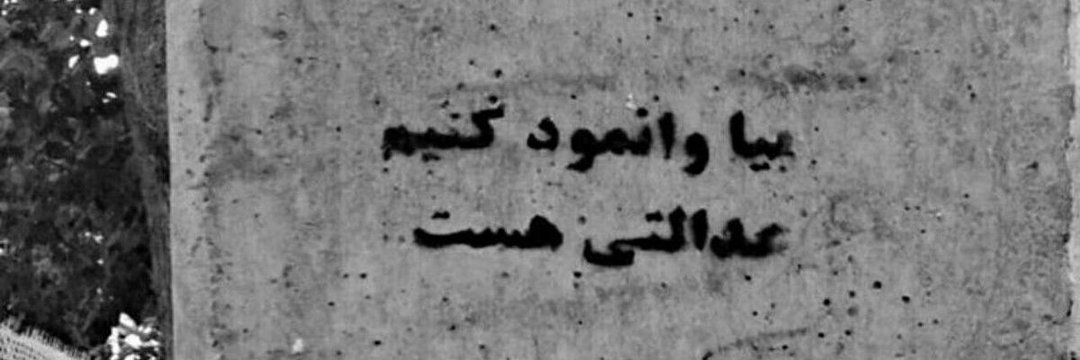 بیا وانمود کنیم
عدالتی هست